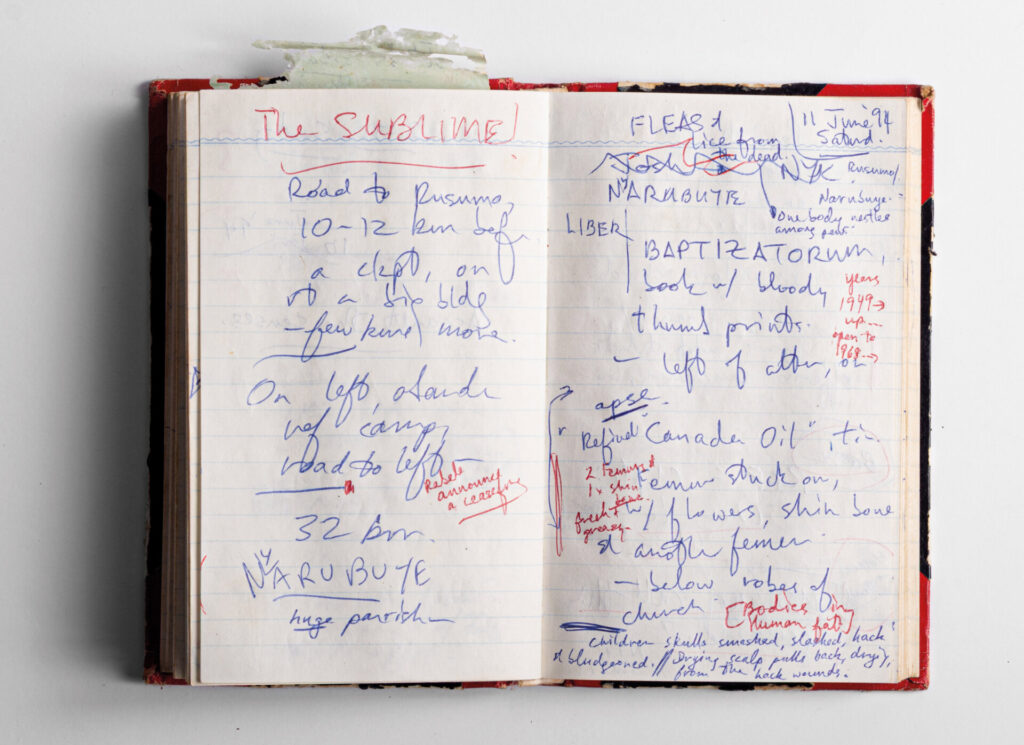 The SUBLIME!
Road to Rusumo,
10-12 km bef
a ckpt, on
rt a big bldg
- few kms more.
On left, stands
ref camp,
road to left -
Rebels
announce
a ceasefire
32 km.
NYARUBUYE
huge parrish
11 June 94
Saturd.
FLEAS &
lice from
the dead.
Josh NYK
Rusumo/
Narubuye.
NYARUBUYE
One body nestles
among pews
LIBER
BAPTIZATORUM,
book w/ bloody
thumb prints.
years
1949→
up...
open to
1968→
- left of altar, on
apse.
Refined "Canada Oil" tin
2 femurs &
1x shin
bone
fresh &
greasy.
Femur stuck on,
w/ flowers, shin bone
& another femur
- below robes of
church
[Bodies in
human fat]
Children skulls smashed, slashed, hack
& bludgeoned. // Drying scalp pulls back, drying,
from the hack wounds.